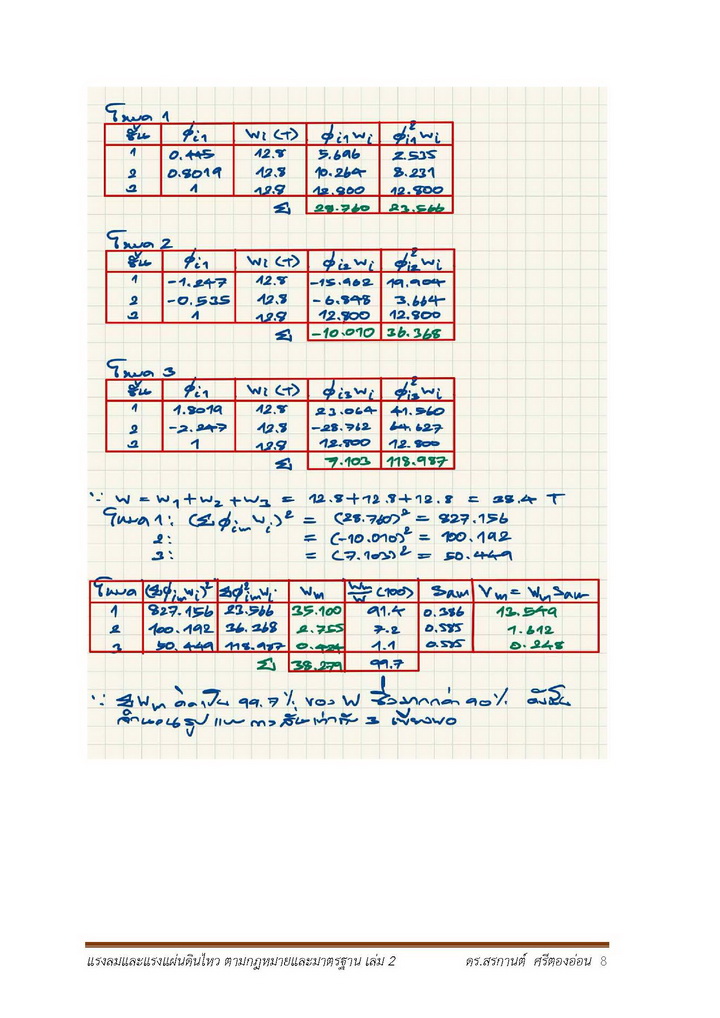 โหมด 1
ชั้น ϕi1 Wi (T) ϕi1 Wi ϕ²i1 Wi
1 0.445 12.8 5.696 2.535
2 0.8019 12.8 10.264 8.231
3 1 12.8 12.800 12.800
Σ 28.760 23.566
โหมด 2
ชั้น ϕi1 Wi (T) ϕi2 Wi ϕ²i2 Wi
1 -1.247 12.8 -15.962 19.904
2 -0.535 12.8 -6.848 3.664
3 1 12.8 12.800 12.800
Σ -10.010 36.368
โหมด 3
ชั้น ϕi1 Wi (T) ϕi3 Wi ϕ²i3 Wi
1 1.8019 12.8 23.064 41.560
2 -2.247 12.8 -28.762 64.627
3 1 12.8 12.800 12.800
Σ 7.103 118.987
∵ W = W1 + W2 + W3 = 12.8 + 12.8 + 12.8 = 38.4 T
โหมด 1: (Σϕim Wi)² = (28.760)² = 827.156
2: = (-10.010)² = 100.192
3: = (7.103)² = 50.449
โหมด (Σϕim Wi)² Σϕ²im Wi Wm Wm/W (100) Sam Vm = Wm Sam
1 827.156 23.566 35.100 91.4 0.386 13.549
2 100.192 36.368 2.755 7.2 0.585 1.612
3 50.449 118.987 0.424 1.1 0.585 0.248
Σ 38.279 99.7
∵ ΣWm คิดเป็น 99.7% ของ W ซึ่งมากกว่า 90% ดังนั้น
จำนวนรูปแบบการสั่นเท่ากับ 3 เพียงพอ
แรงลมและแรงแผ่นดินไหว ตามกฎหมายและมาตรฐาน เล่ม 2 ดร.สรกานต์ ศรีตองอ่อน 8